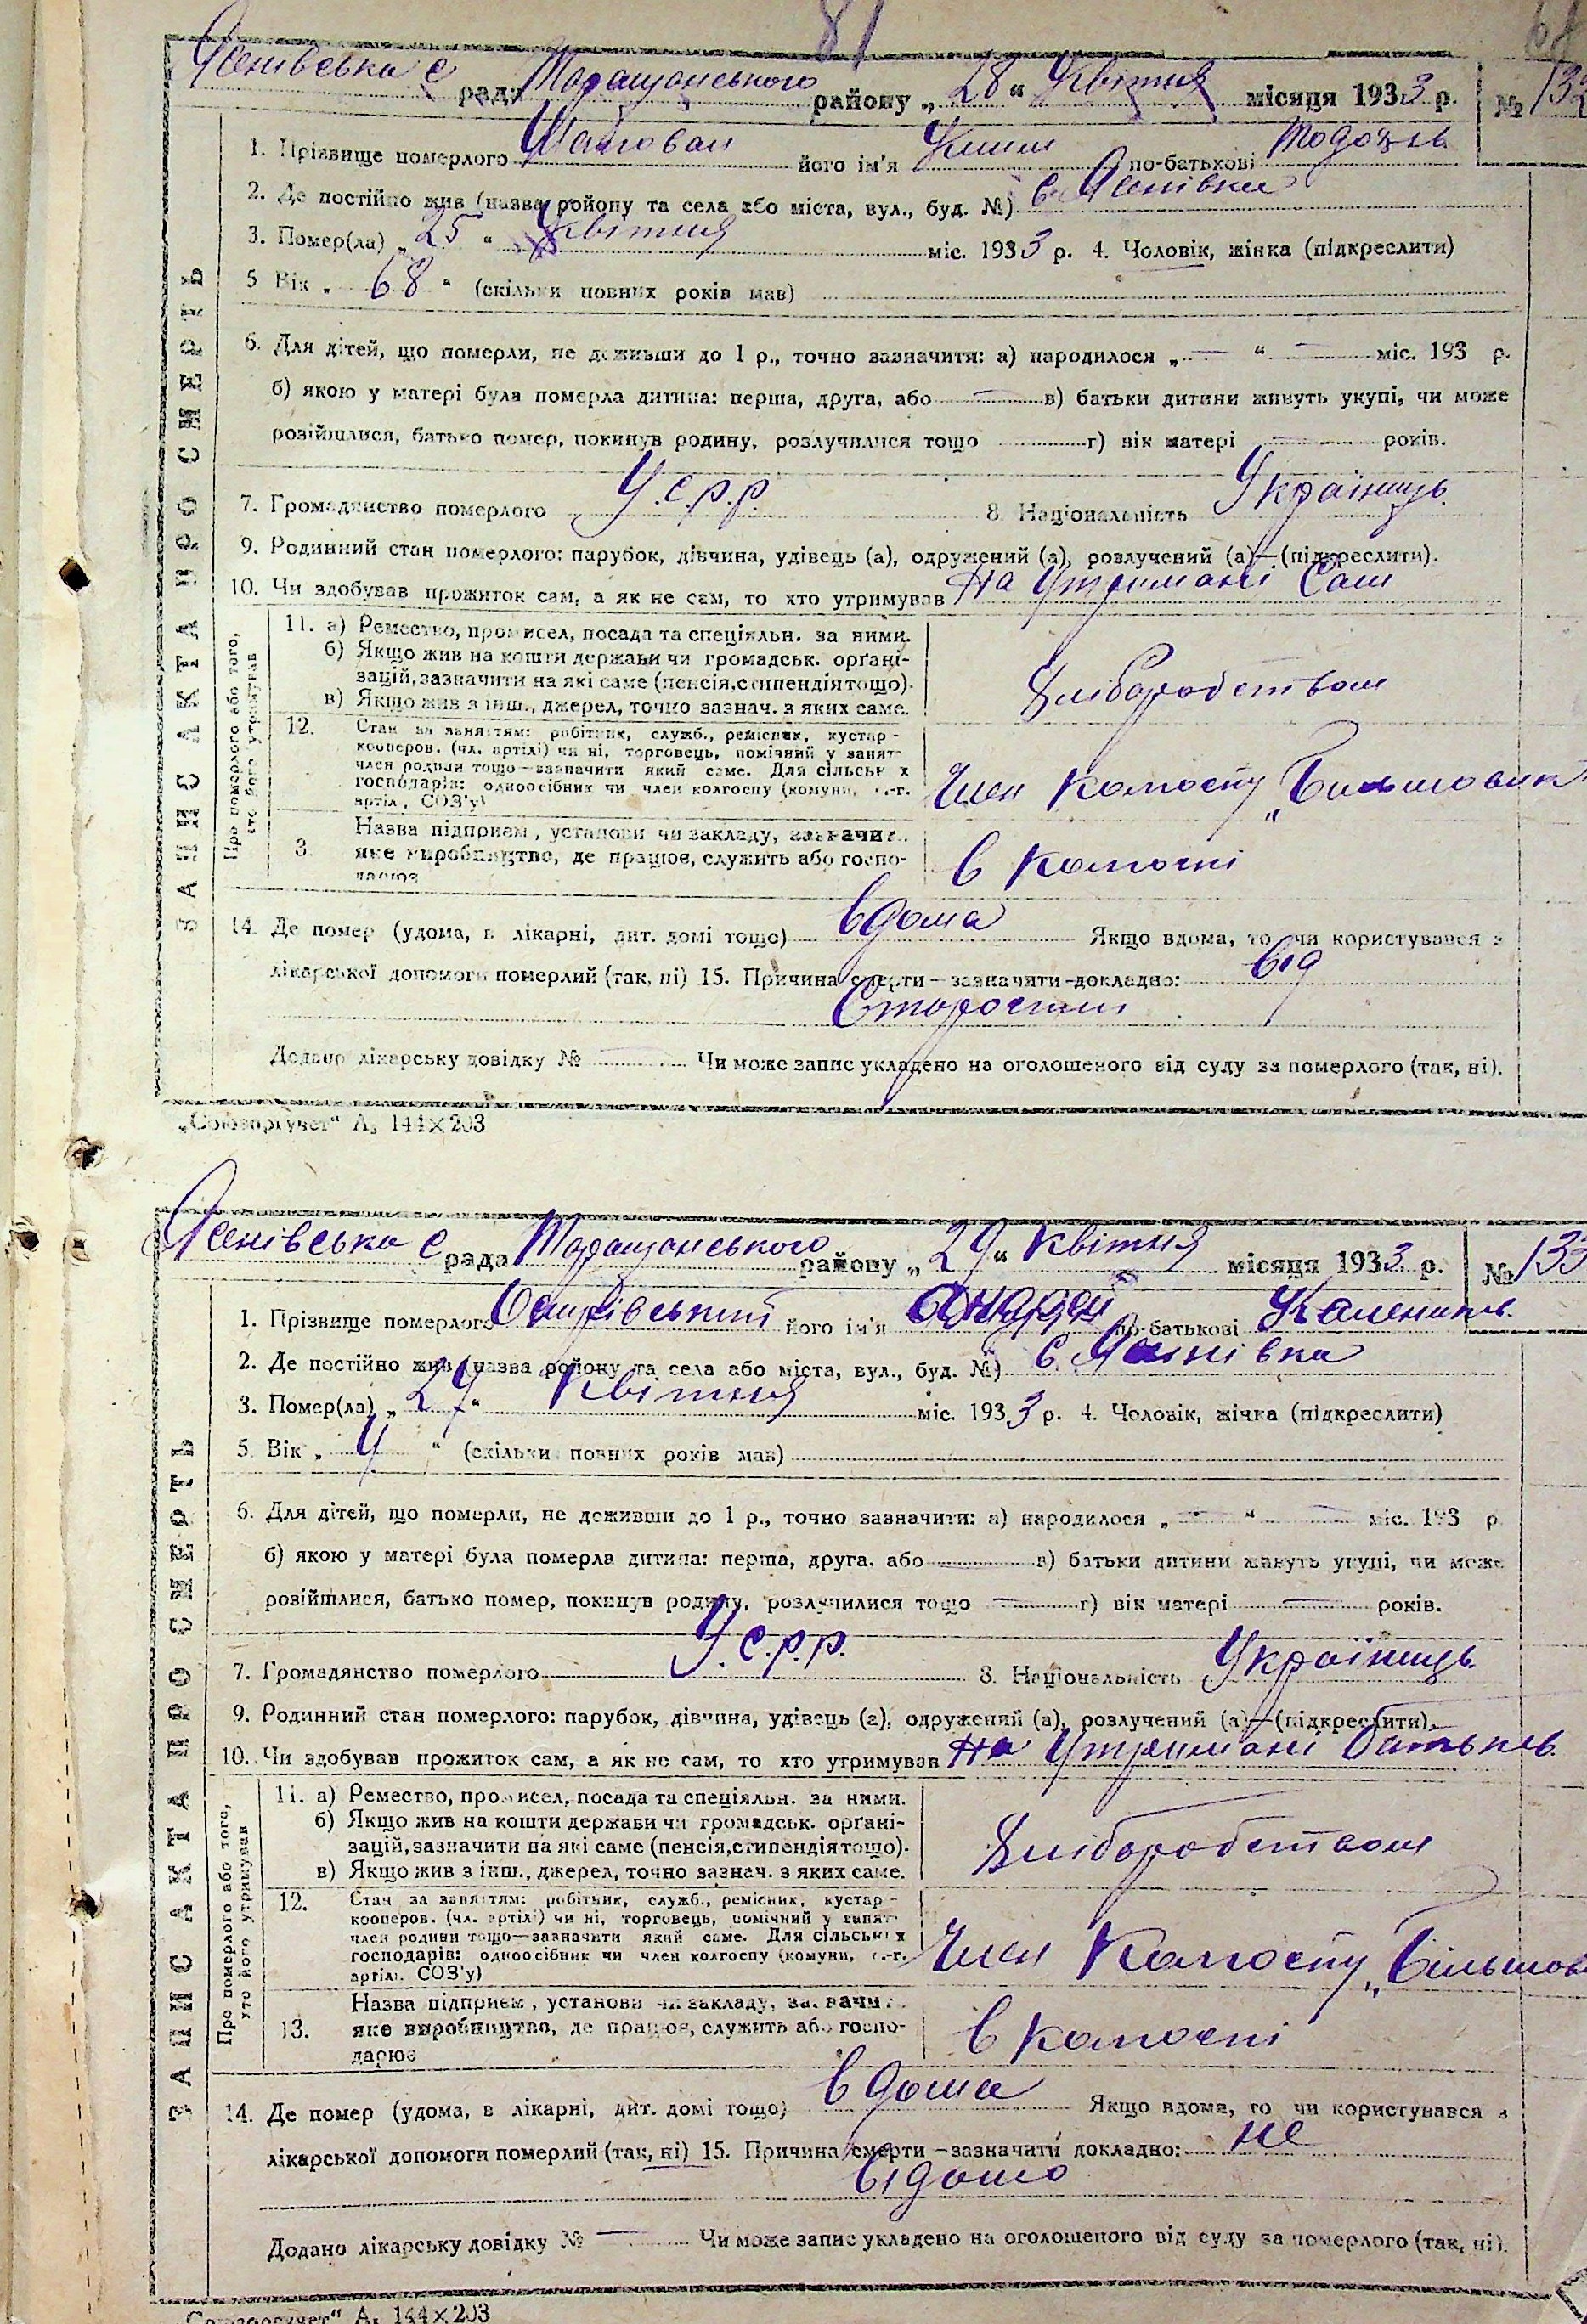 81
Янівська с рада Таращанського району „28“ Квітня місяця 1933 р. №
1. Прізвище померлого його ім'я по-батькові
2. Де постійно жив (назва району та села або міста, вул., буд. №) с. Янівка
3. Помер(ла) „25“ Квітня міс. 1933 р. 4. Чоловік, жінка (підкреслити)
5 Вік „68“ (скільки повних років мав)
6. Для дітей, що померли, не доживши до 1 р., точно зазначити: а) народилося „—“ — міс. 193 р.
б) якою у матері була померла дитина: перша, друга, або — в) батьки дитини живуть укупі, чи може
розійшлися, батько помер, покинув родину, розлучилися тощо г) вік матері — років.
7. Громадянство померлого У.с.р.р. 8. Національність Українець
9. Родинний стан померлого: парубок, дівчина, удівець (а), одружений (а), розлучений (а)—(підкреслити).
10. Чи здобував прожиток сам, а як не сам, то хто утримував На утримані Сам
ЗАПИС АКТА ПРО СМЕРТЬ
Про померлого або того,
хто його утримував
11. а) Ремество, промисел, посада та спеціяльн. за ними.
б) Якщо жив на кошти держави чи громадськ. орґані-
зацій, зазначити на які саме (пенсія, стипендія тощо).
в) Якщо жив з інш., джерел, точно зазнач. з яких саме.
Хліборобством
12. Стан за заняттям: робітник, служб., ремісник, кустар -
кооперов. (чл. артілі) чи ні, торговець, помічний у занят-
член родини тощо—зазначити який саме. Для сільськ х
господарів: одноосібник чи член колгоспу (комуни, с.-г.
артіл, СОЗ'у)
Член Колгоспу „Більшовик
3. Назва підприєм, установи чи закладу, зазначит
яке виробництво, де працює, служить або госпо-
дарює
в Колгоспі
14. Де помер (удома, в лікарні, дит. домі тощо) вдома Якщо вдома, то чи користувався з
лікарської допомоги померлий (так, ні) 15. Причина смерти—зазначити докладно: від
Старости
Додано лікарську довідку № — Чи може запис укладено на оголошеного від суду за померлого (так, ні).
„Союзоргучет“ А₅ 144×203
Янівська с рада Таращанського району „29“ Квітня місяця 1933 р. № 133
1. Прізвище померлого його ім'я Андрей по-батькові
2. Де постійно жив (назва району та села або міста, вул., буд. №) с. Янівка
3. Помер(ла) „27“ Квітня міс. 1933 р. 4. Чоловік, жінка (підкреслити)
5. Вік „4“ (скільки повних років мав)
6. Для дітей, що померли, не доживши до 1 р., точно зазначити: а) народилося „—“ — міс. 193 р
б) якою у матері була померла дитина: перша, друга, або в) батьки дитини живуть укупі, чи може
розійшлися, батько помер, покинув родину, розлучилися тощо — г) вік матері — років.
7. Громадянство померлого У.с.р.р. 8. Національність Українець
9. Родинний стан померлого: парубок, дівчина, удівець (а), одружений (а), розлучений (а)—(підкреслити).
10. Чи здобував прожиток сам, а як не сам, то хто утримував На утримані батьків
ЗАПИС АКТА ПРО СМЕРТЬ
Про померлого або того,
хто його утримував
11. а) Ремество, промисел, посада та спеціяльн. за ними.
б) Якщо жив на кошти держави чи громадськ. орґані-
зацій, зазначити на які саме (пенсія, стипендія тощо).
в) Якщо жив з інш., джерел, точно зазнач. з яких саме.
Хліборобством
12. Стан за заняттям: робітник, служб., ремісник, кустар -
кооперов. (чл. артілі) чи ні, торговець, помічний у занят-
член родини тощо—зазначити який саме. Для сільських
господарів: одноосібник чи член колгоспу (комуни, с.-г.
артілі. СОЗ'у)
Член Колгоспу „Більшов
13. Назва підприєм, установи чи закладу, зазначит
яке виробництво, де працює, служить або госпо-
дарює
в колгоспі
14. Де помер (удома, в лікарні, дит. домі тощо) вдома Якщо вдома, то чи користувався з
лікарської допомоги померлий (так, ні) 15. Причина смерти—зазначити докладно: не
відомо
Додано лікарську довідку № — Чи може запис укладено на оголошеного від суду за померлого (так, ні).
„Союзоргучет“ А₅ 144×203